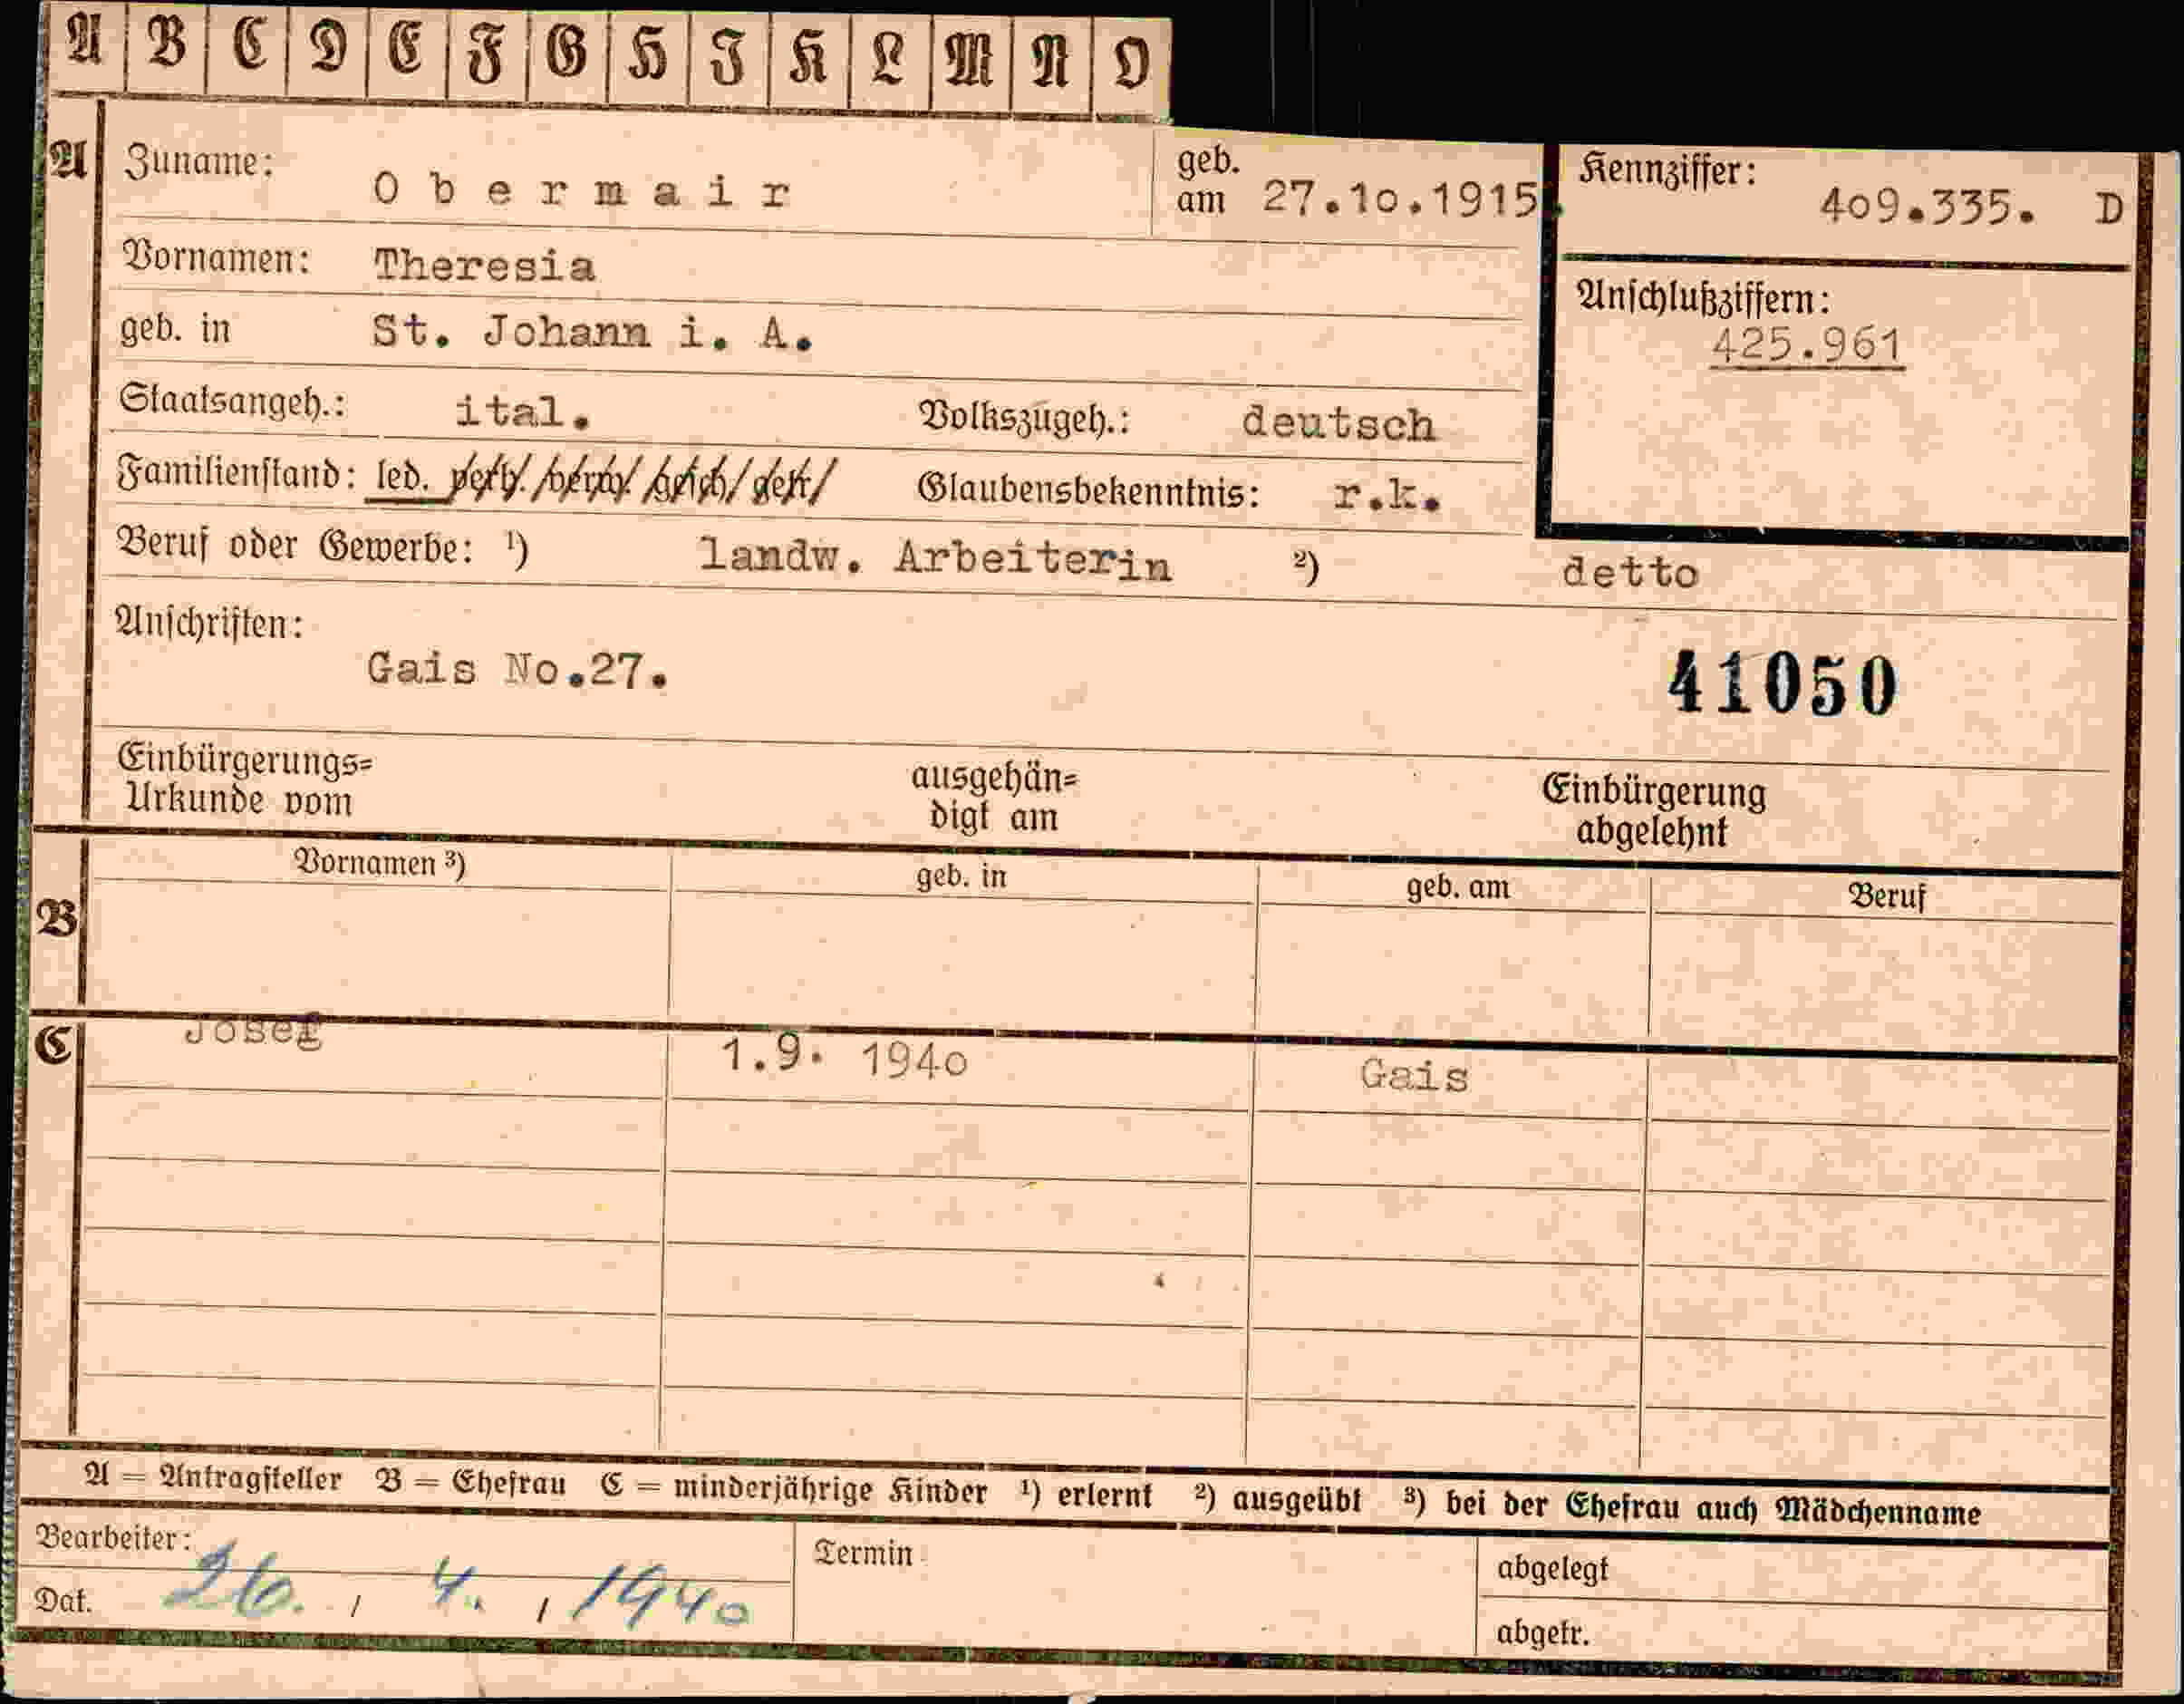 A B C D E F G H I K L M N O
A Zuname: Obermair geb. am 27.10.1915. Kennziffer: 409.335. D
Vornamen: Theresia
Anschlußziffern: 425.961
geb. in St. Johann i. A.
Staatsangeh.: ital. Volkszugeh.: deutsch
Familienstand: led. verh. verw. gesch. getr. Glaubensbekenntnis: r.k.
Beruf oder Gewerbe: ¹) landw. Arbeiterin ²) detto
Anschriften: Gais No.27.
41050
Einbürgerungs=
Urkunde vom
ausgehän=
digt am
Einbürgerung
abgelehnt
B Vornamen ³) geb. in geb. am Beruf
C Josef 1.9. 1940 Gais
A = Antragsteller B = Ehefrau C = minderjährige Kinder ¹) erlernt ²) ausgeübt ³) bei der Ehefrau auch Mädchenname
Bearbeiter: Termin abgelegt
Dat. 26. / 4. / 1940 abgetr.